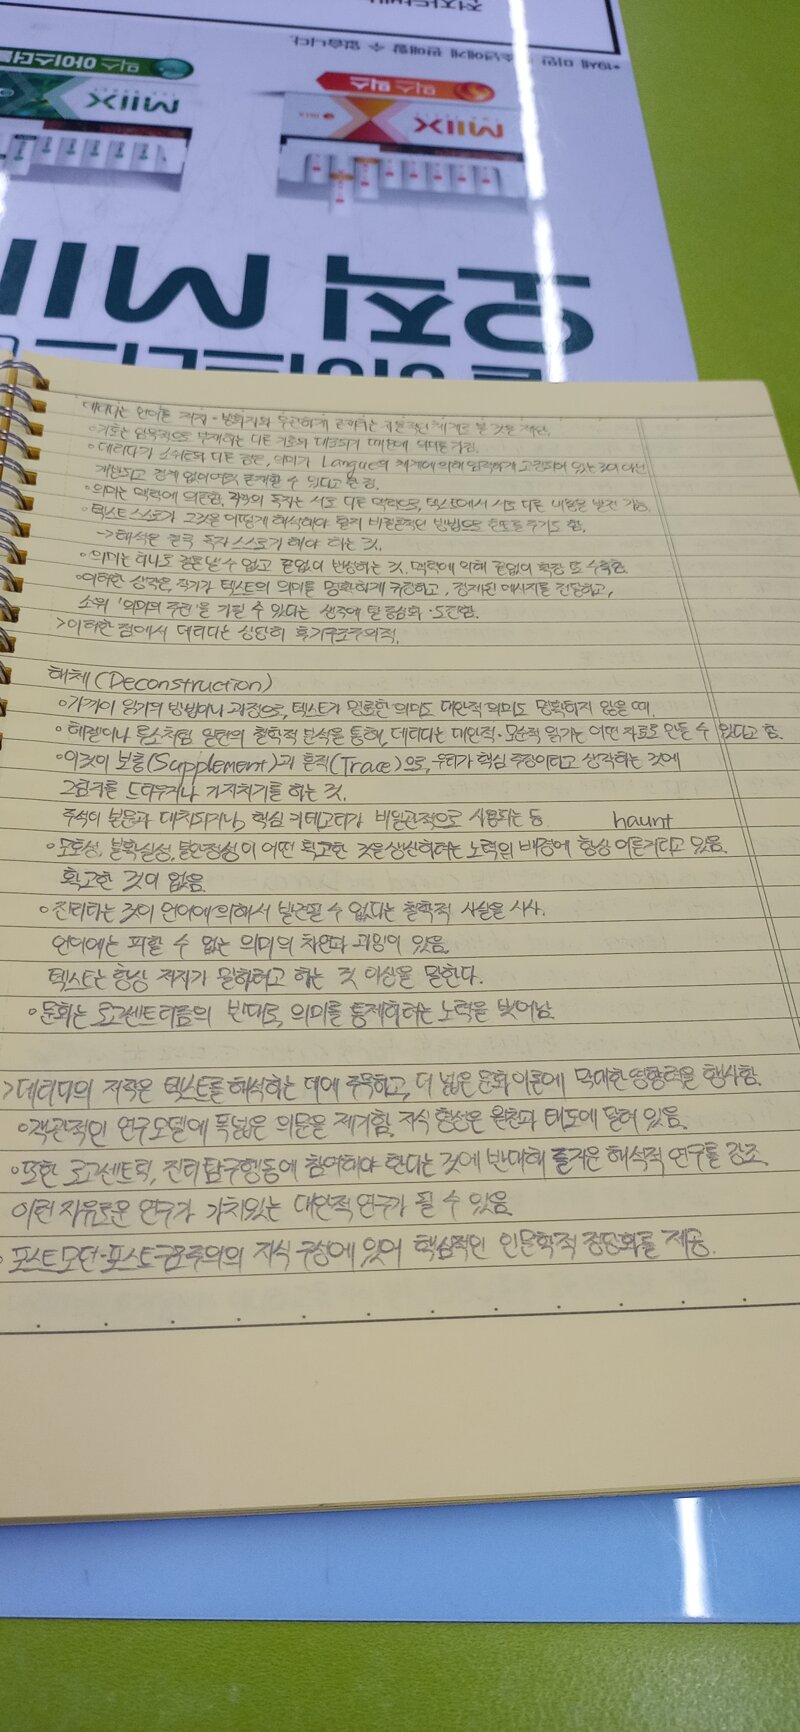 *19세 미만 청소년에게 판매할 수 없습니다.
믹스 아이스더블
믹스 믹스
MIIX
MIIX
오직 MII
데리다는 언어를 저자·발화자와 무관하게 존재하는 자율적인 체계로 볼 것을 제안.
◦기호는 암묵적으로 부재하는 다른 기호와 대조되기 때문에 의미를 가짐.
◦데리다가 소쉬르와 다른 점은, 의미가 Langue의 체계에 의해 엄격하게 고정되어 있는 것이 아닌
개방되고 경계 없이 존재할 수 있다고 본 점.
◦의미는 맥락에 의존함. 각각의 독자는 서로 다른 맥락으로, 텍스트에서 서로 다른 내용을 발견 가능.
◦텍스트 스스로가 그것을 어떻게 해석해야 할지 비일관적인 방법으로 힌트를 주기도 함.
-> 해석은 결국 독자 스스로가 해야 하는 것.
◦의미는 하나로 결론낼 수 없고 끝없이 번성하는 것. 맥락에 의해 끝없이 확장 또 수축함.
◦이러한 생각은, 작가가 텍스트의 의미를 명확하게 규정하고, 정제된 메시지를 전달하고,
소위 '의미의 주권'을 가질 수 있다는 생각에 탈중심화·도전함.
>이러한 점에서 데리다는 상당히 후기구조주의적.
해체(Deconstruction)
◦가까이 읽기의 방법이나 과정으로, 텍스트가 명료한 의미도 대안적 의미도 명확하지 않을 때.
◦헤겔이나 루소처럼 일련의 철학적 분석을 통해, 데리다는 대안적·모순적 읽기는 어떤 자료로 만들 수 있다고 함.
◦이것이 보충(Supplement)과 흔적(Trace)으로, 우리가 핵심 주장이라고 생각하는 것에
그림자를 드리우거나 가지치기를 하는 것.
주석이 본문과 대치되거나, 핵심 카테고리가 비일관적으로 사용되는 등
haunt
◦모호성, 불확실성, 불안정성이 어떤 확고한 것을 생산하려는 노력의 배경에 항상 어른거리고 있음.
확고한 것이 없음.
◦진리라는 것이 언어에 의해서 발견될 수 없다는 철학적 사실을 시사.
언어에는 피할 수 없는 의미의 차연과 과잉이 있음.
텍스트는 항상 저자가 말하려고 하는 것 이상을 말한다.
◦문화는 로고센트리즘의 반대로, 의미를 통제하려는 노력을 벗어남.
>데리다의 저작은 텍스트를 해석하는 데에 주목하고, 더 넓은 문화 이론에 막대한 영향력을 행사함.
◦객관적인 연구모델에 폭넓은 의문을 제기함. 지식 형성은 원천과 태도에 달려 있음.
◦또한 로고센트릭, 진리 탐구행동에 참여해야 한다는 것에 반대해 즐거운 해석적 연구를 강조.
이런 자유로운 연구가 가치있는 대안적 연구가 될 수 있음.
◦포스트모던·포스트구조주의의 지식 구성에 있어 핵심적인 인문학적 정당화를 제공.